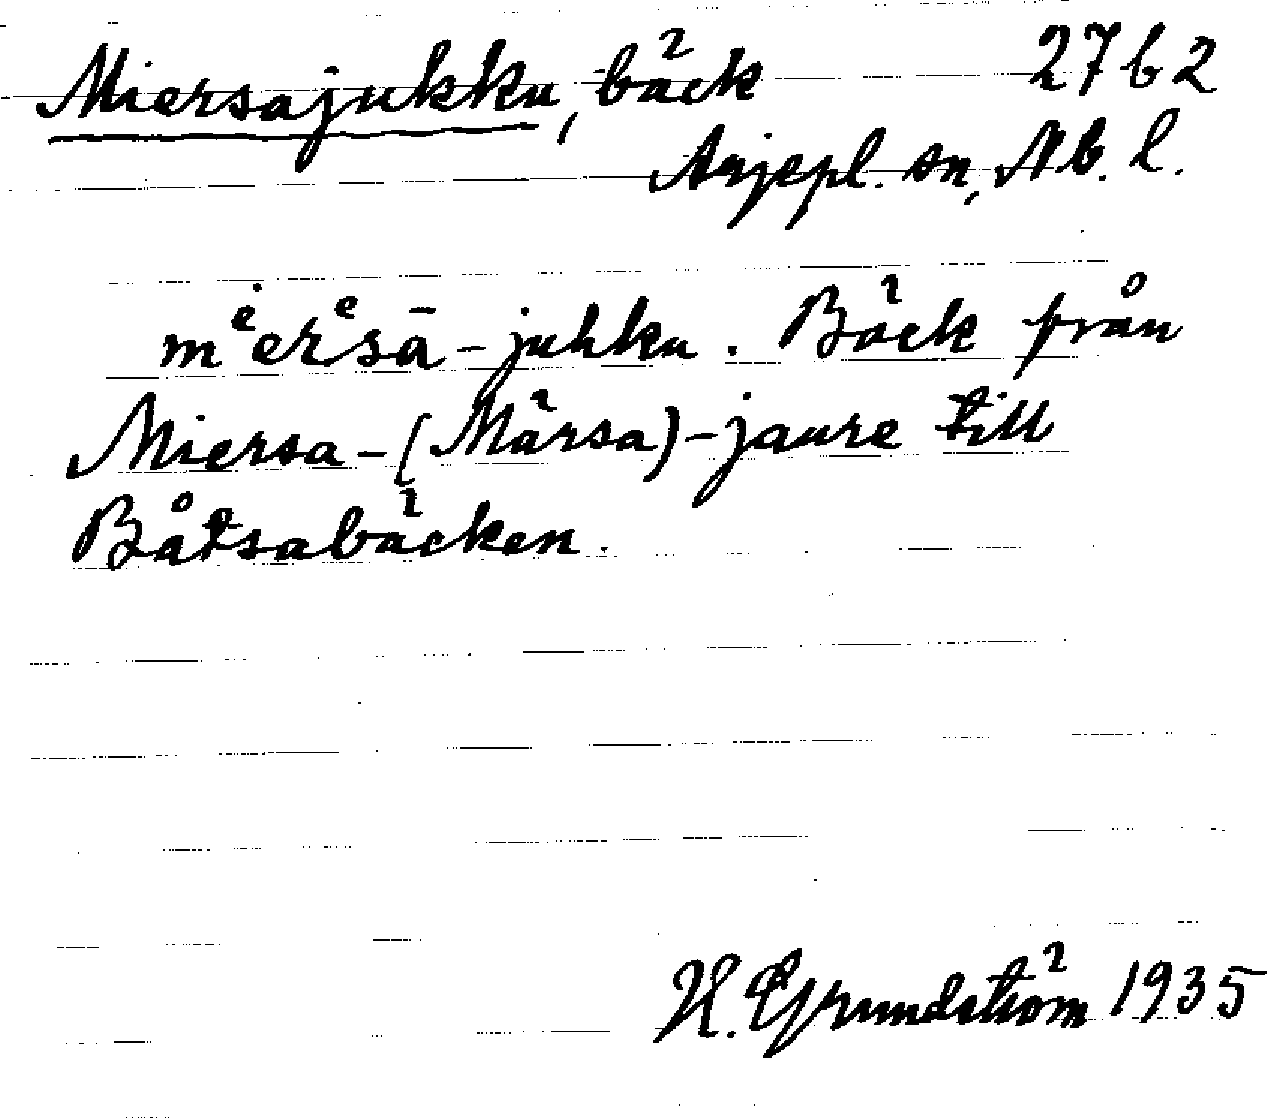 Miersajukku, bäck 2762
Arjepl. sn, Nb. l.
mᵉėrᵉsā-juhku. Bäck från
Miersa-(Märsa)-jaure till
Båtsabäcken.
H. Grundström 1935